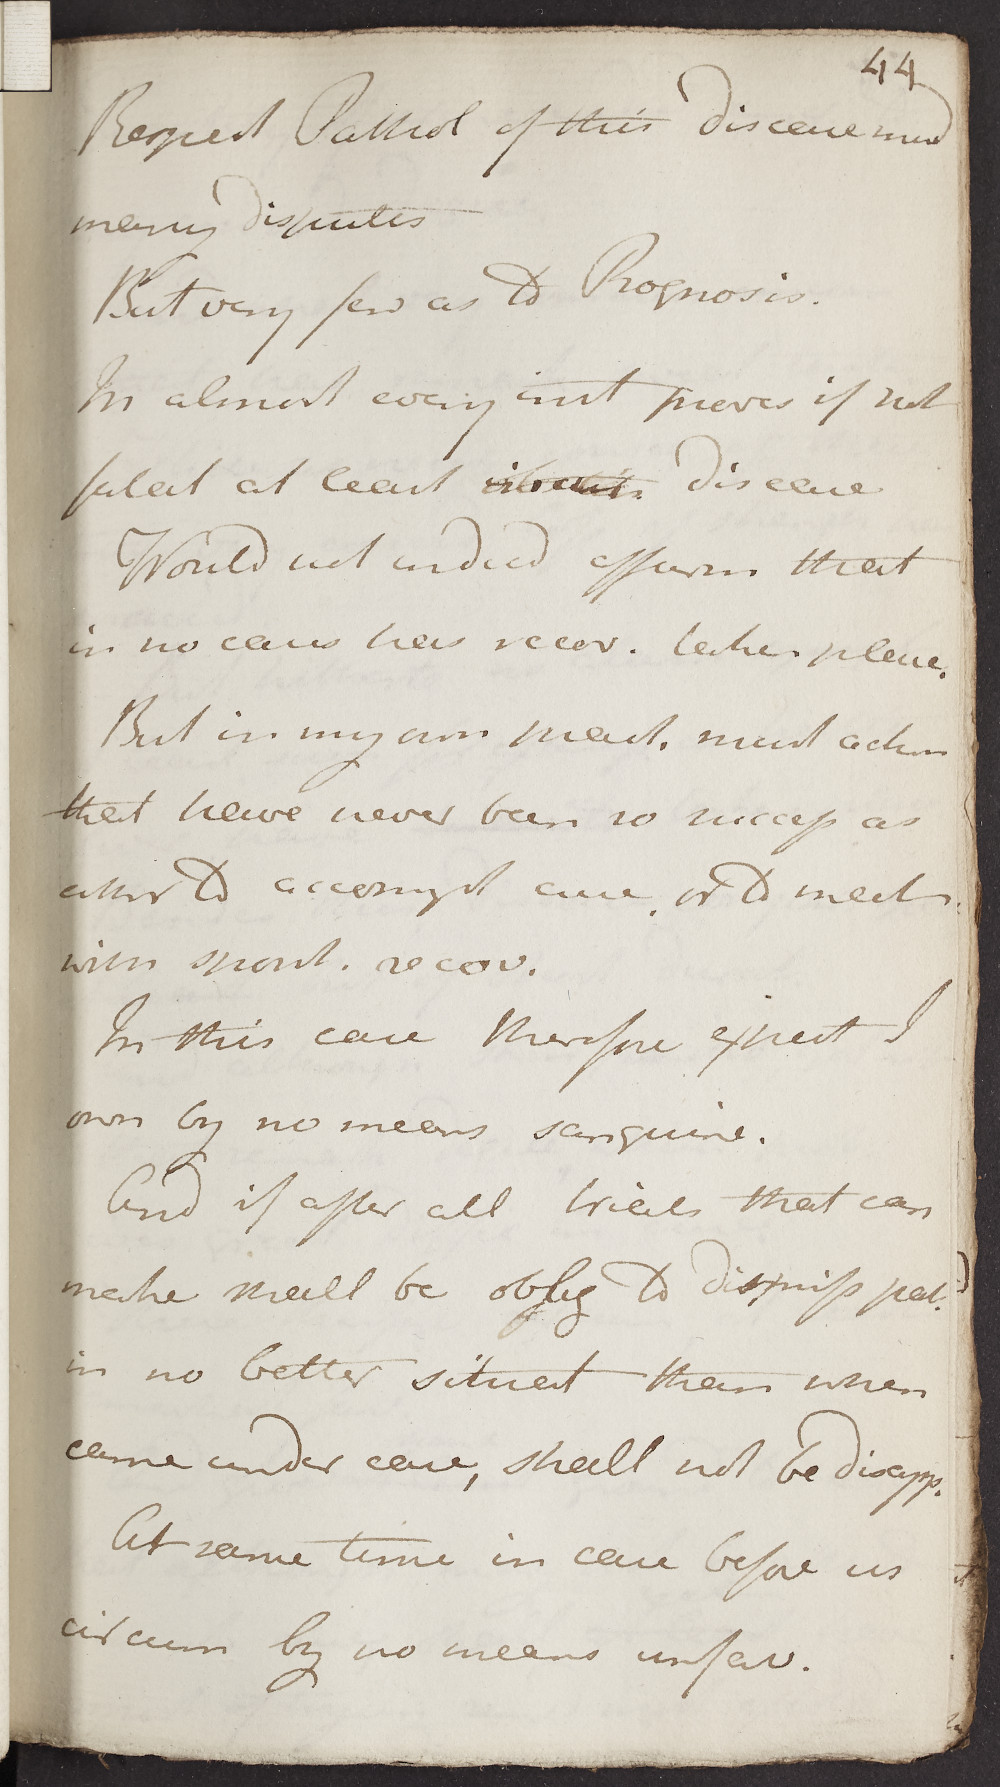 44
Respect Pathol of this disease and
many disputes
But very few as to Prognosis.
In almost every inst proves if not
fatal at least obstin. disease
Would not indeed affirm that
in no case has recov. taken place.
But in my own pract. must ackn
that have never been so success as
either to accompl cure, or to meet
with spont. recov.
In this case therefore expect I
own by no means sanguine.
And if after all trials that can
make shall be oblig to dismiss pat.
in no better situat than when
came under care, shall not be disapp.
At same time in case before us
circum by no means unfav.